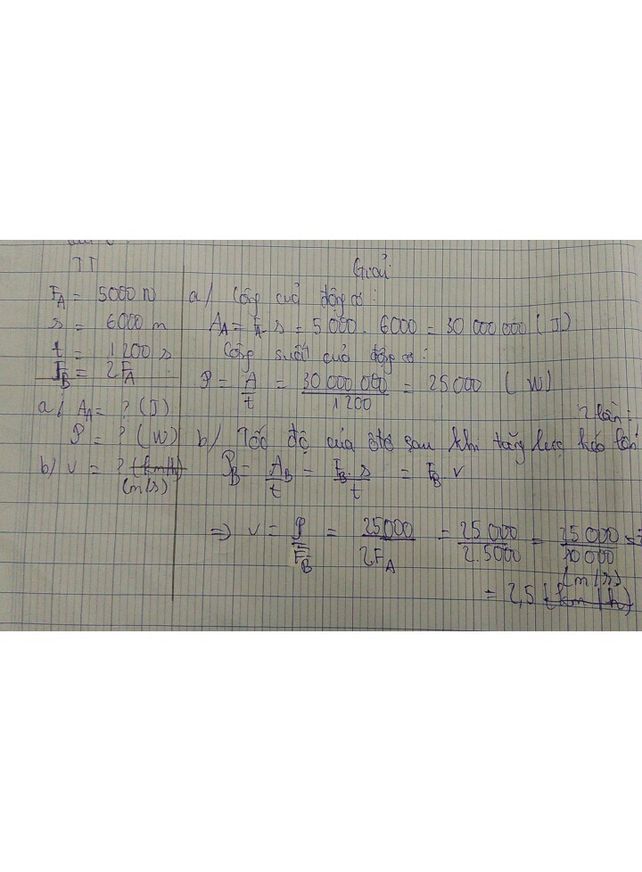 TT
Giải:
F_A = 5000 N
s = 6000 m
t = 1200 s
F_B = 2F_A
a/ A_A = ? (J)
P = ? (W)
b/ v = ? (km/h)
(m/s)
a/ Công của động cơ:
A_A = F_A . s = 5 000 . 6000 = 30 000 000 (J)
Công suất của động cơ:
P = A/t = 30 000 000/1200 = 25 000 (W)
2 lần:
b/ Tốc độ của ôtô sau khi tăng lực kéo lên
P_B = A_B/t = F_B . s/t = F_B . v
⇒ v = P/F_B = 25000/2F_A = 25 000/2.5000 = 25 000/10 000
(m/s)
= 2,5 (km/h)